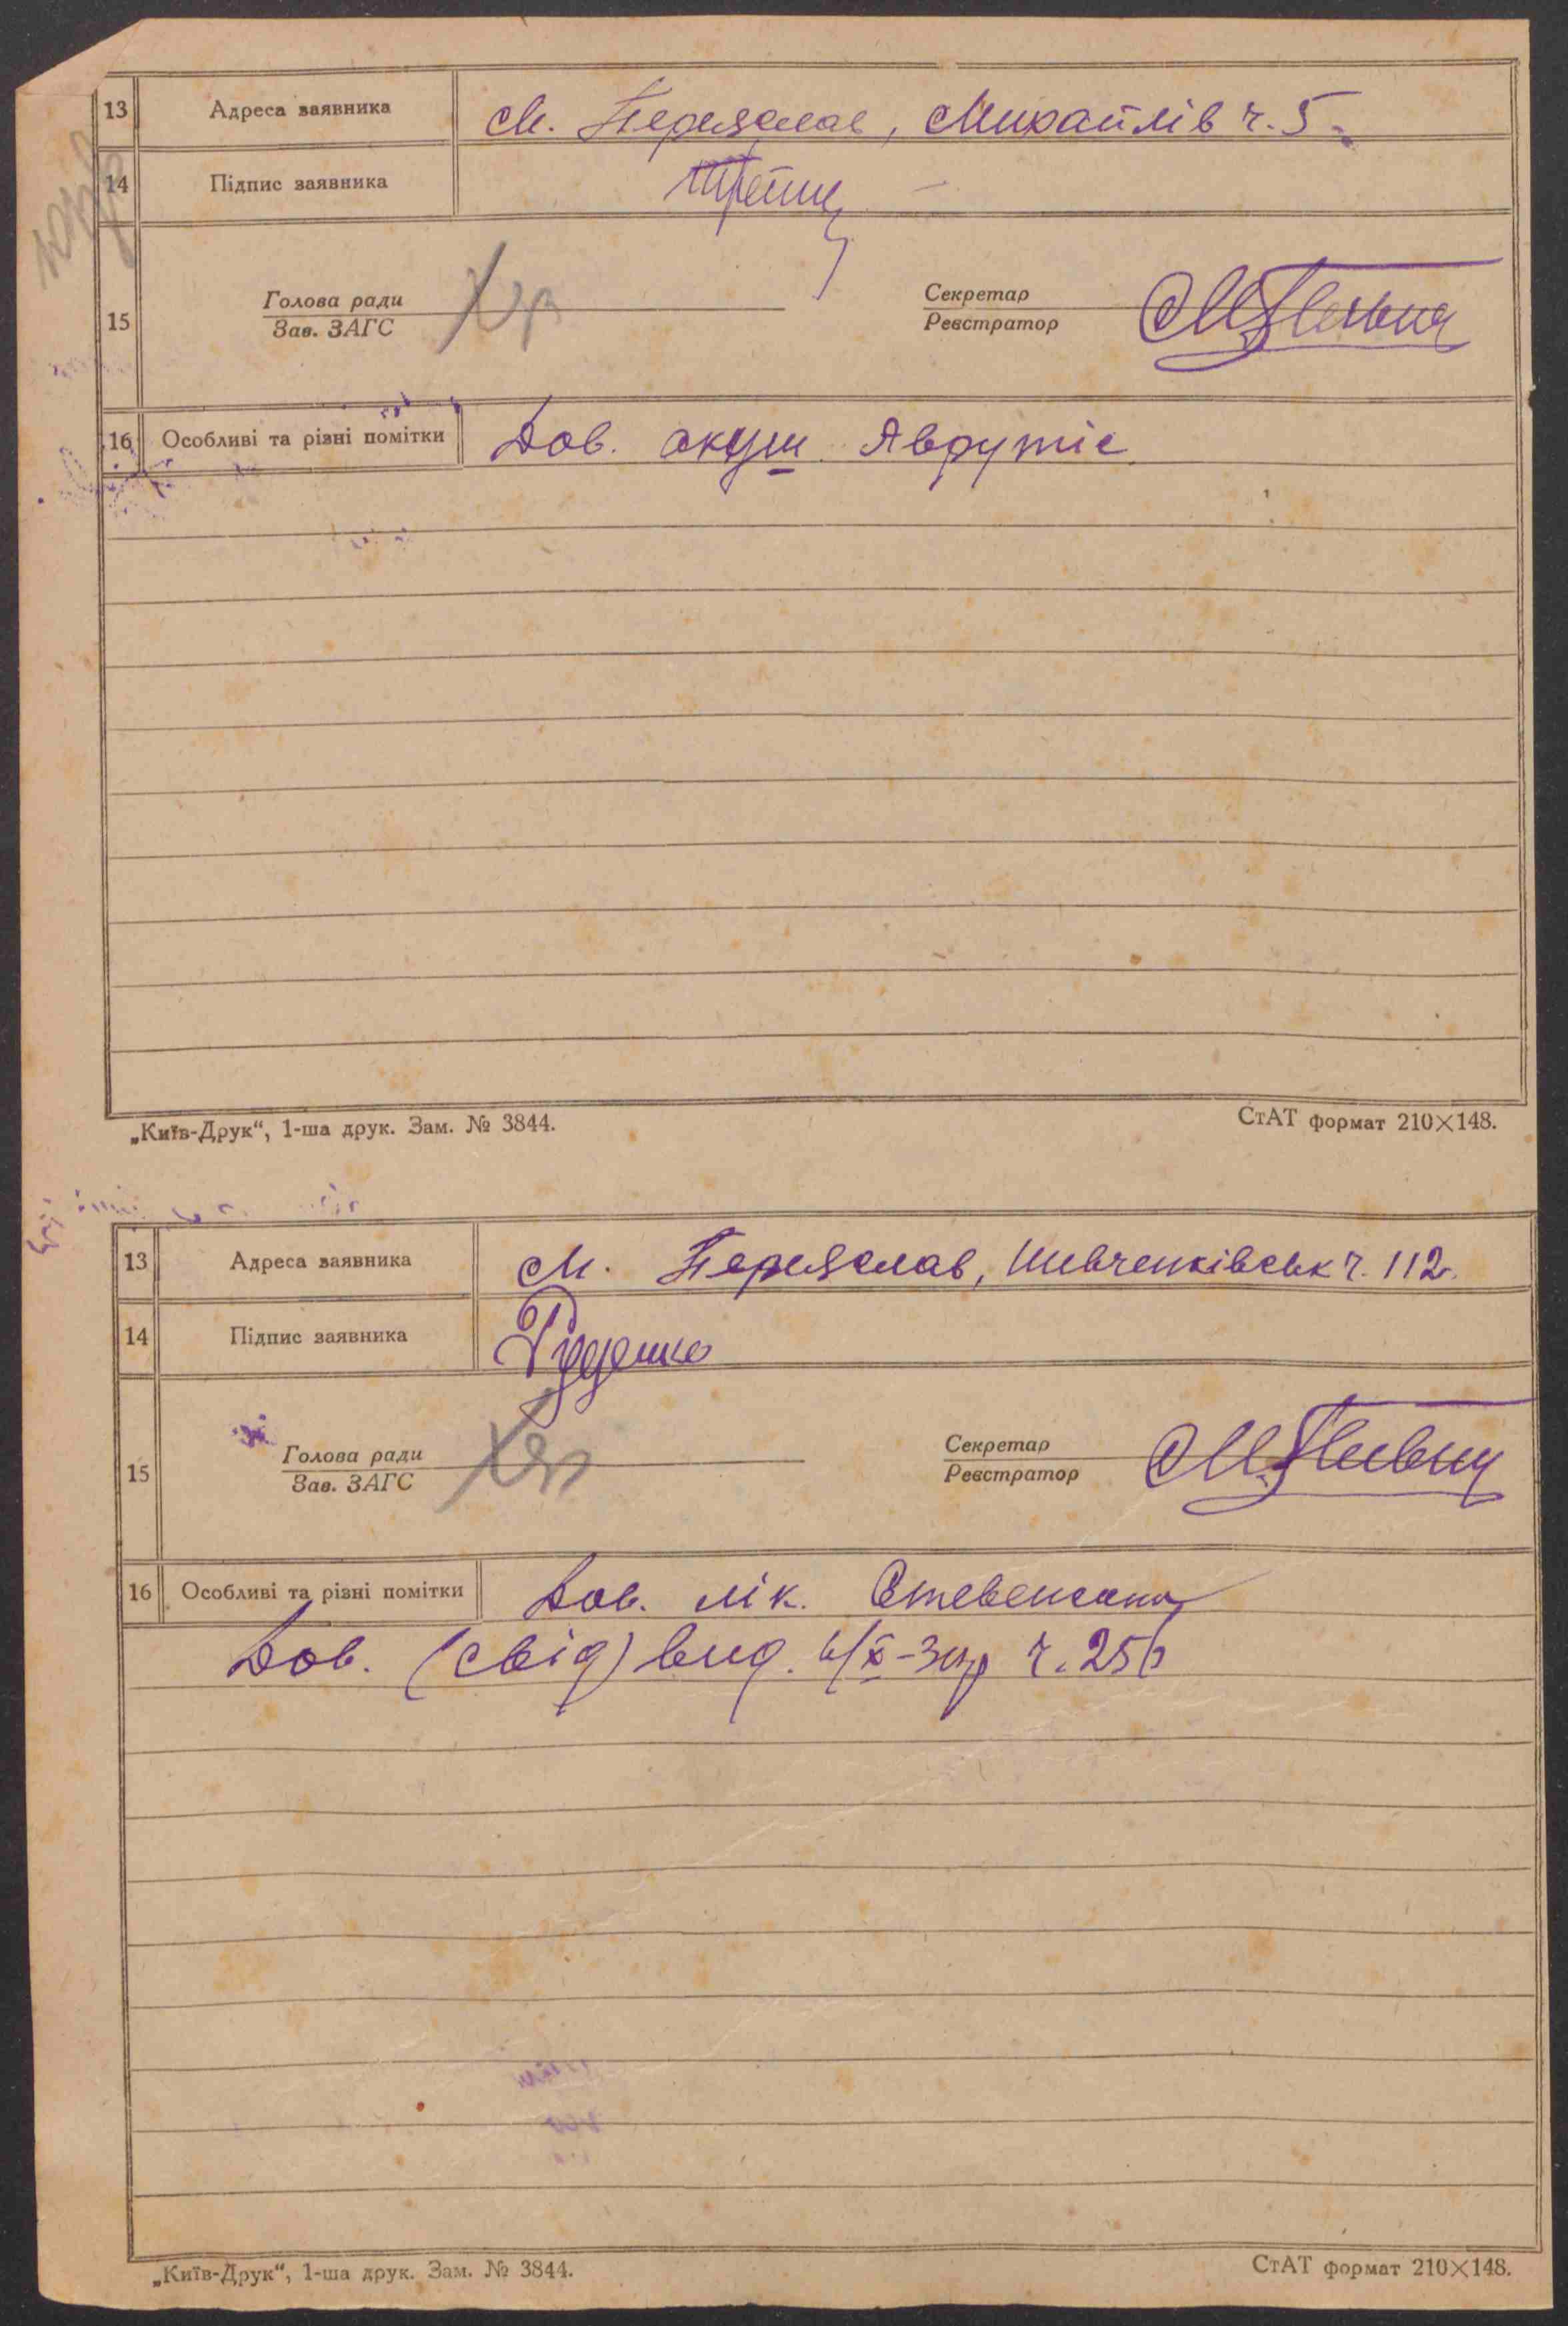 13 Адреса заявника м. Переяслав, Михайлів ч. 5
14 Підпис заявника
15 Голова ради Секретар
Зав. ЗАГС Реєстратор
16 Особливі та різні помітки Дов. акуш. Аврутіс
„Київ-Друк“, 1-ша друк. Зам. № 3844. СтАТ формат 210×148.
13 Адреса заявника м. Переяслав, Шевченківськ ч. 112
14 Підпис заявника Руденко
15 Голова ради Секретар
Зав. ЗАГС Реєстратор
16 Особливі та різні помітки Дов. лік.
Дов. (свід) вид. ч. 256
„Київ-Друк“, 1-ша друк. Зам. № 3844. СтАТ формат 210×148.